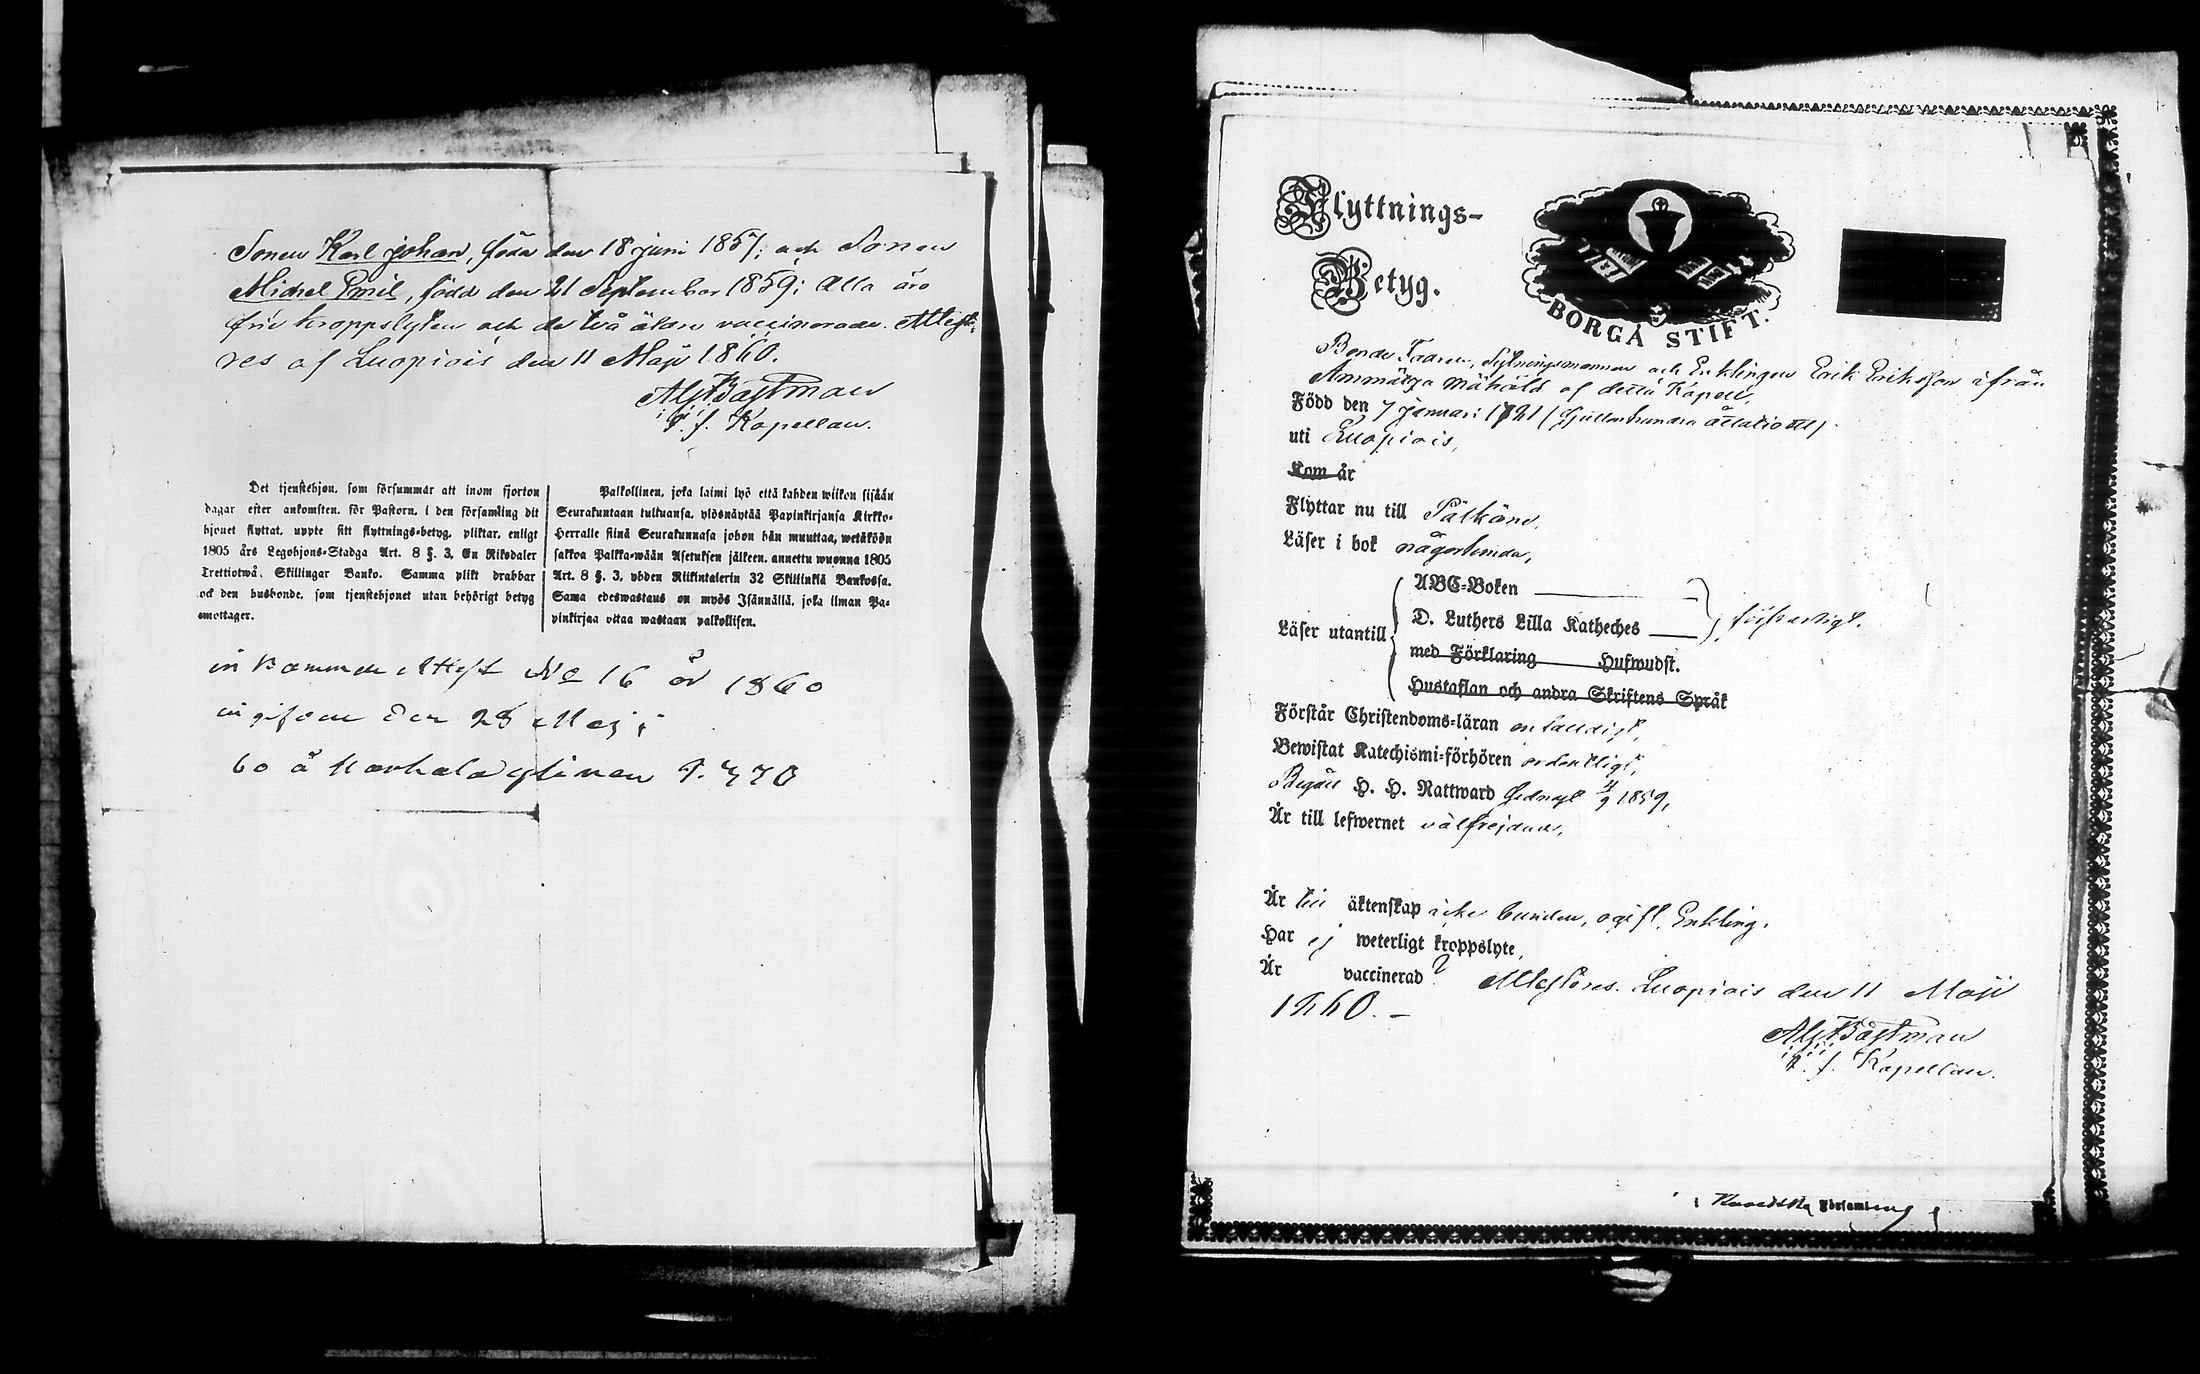 Sonen Karl Johan, född den 18 Juni 1857; och Sonen
Michel Emil, född den 21 September 1859; Alla äro
från kroppslyten och de två äldre vaccinerade. Atteste-
res af Luopiois den 11 Maji 1860.
Alf Bastman
v. f. Kapellan.
Det tjenstehjon, som försummar att inom fjorton
dagar efter ankomsten, för Pastorn, i den församling dit
hjonet flyttat, uppte sitt flyttnings-betyg, pliktar, enligt
1805 års Legohjons-Stadga Art. 8 §. 3, En Riksdaler
Trettiotwå, Skillingar Banko. Samma plikt drabbar
ock den husbonde, som tjenstehjonet utan behörigt betyg
emottager.
Palkollinen, joka laimi lyö että kahden wiikon sisään
Seurakuntaan tultuansa, ylösnäytää Papinkirjansa Kirkko-
Herralle siinä Seurakunnasa johon hän muuttaa, wetäköön
sakkoa Palkka-wään Asetuksen jälkeen, annettu wuonna 1805
Art. 8 §. 3, yhden Riikintalerin 32 Skillinkiä Bankossa.
Sama edeswastaus on myös Isännällä, joka ilman Pa-
pinkirjaa ottaa wastaan palkollisen.
inkommde Attest No 16 år 1860
ingifven den 28 Maj
bo å P. 770
Flyttnings-
Betyg.
BORGÅ STIFT.
Bonde Fadren, Sytningsmannen och Enklingen Erik Eriksson ifrån
Ammätsä af detta Kapell,
Född den 7 Januari 1781 (sjuttonhundra åttatioett)
uti Luopiois,
Kom år
Flyttar nu till Pälkäne,
Läser i bok någorlunda,
Läser utantill
ABC-Boken
D. Luthers Lilla Katheches
med Förklaring Hufwudst.
Hustaflan och andra Skriftens Språk
försvarligt.
Förstår Christendoms-läran enfaldigt,
Bewistat Katechismi-förhören ordentligt,
Begått H. H. Nattward sednast 11/9 1859,
Är till lefwernet välfrejdad,
Är till äktenskap icke bunden, ogift, Enkling.
Har ej weterligt kroppslyte,
Är vaccinerad? Attesteres. Luopiois den 11 Maji
1860. –
Alf Bastman
v. f. Kapellan.
i Församling